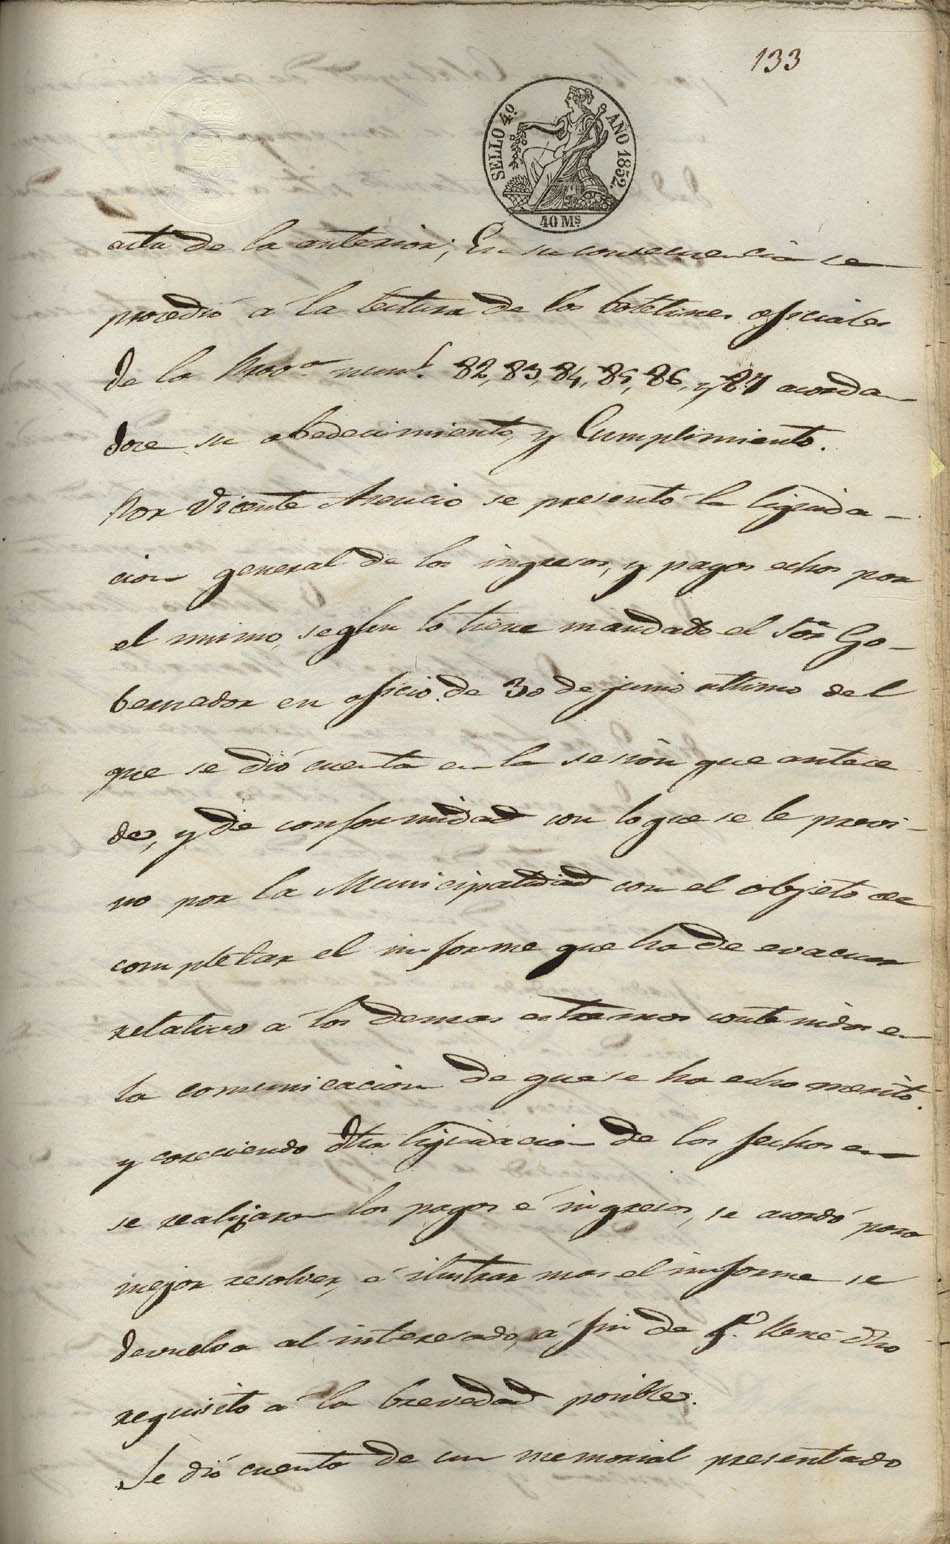 133
SELLO 4º AÑO 1852.
40 Ms
acta de la anterior; En su consecuencia se
procedió á la lectura de los boletines oficiales
de la Prova nums. 82, 83, 84, 85, 86, y 87 acorda
dose su obedecimiento y Cumplimiento.
Por Vicente Asencio se presentó la liquida-
cion general de los ingresos, y pagos echos por
el mismo, segun lo tiene mandado el Sor Go-
bernador en oficio de 30 de junio ultimo del
que se dió cuenta en la sesion que antece
de, y de conformidad con lo que se le previ-
no por la Municipalidad con el objeto de
completar el informe que ha de evacuar
relativo á los demas estremos contenidos en
la comunicacion de que se ha echo merito.
y careciendo dha liquidacion de las fechas en
se realizaron los pagos é ingresos, se acordó para
mejor resolver, é ilustrar mas el informe se
devuelva al interesado, á fin de q.e llene dho
requisito á la brevedad posible.
Se dió cuenta de un memorial presentado